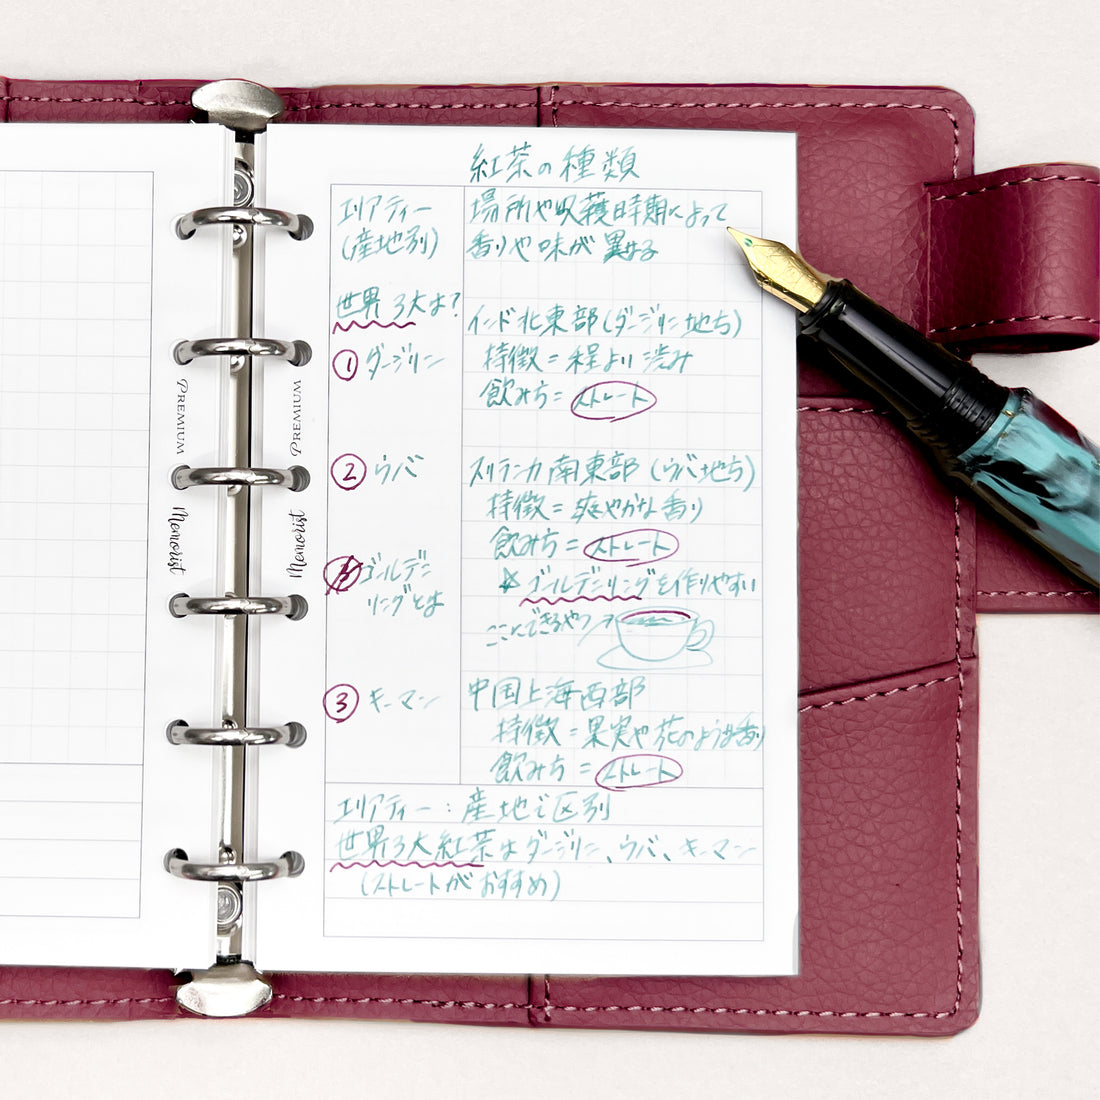 紅茶の種類
エリアティー
(産地別)
場所や収穫時期によって
香りや味が異なる
世界3大は?
①ダージリン
インド北東部(ダージリン地ち)
特徴=程より渋み
飲みち=ストレート
②ウバ
スリランカ南東部(ウバ地ち)
特徴=爽やかな香り
飲みち=ストレート
☆ゴールデンリングを作りやすい
ゴールデン
リングとは
ここにできるやつ→
③キーマン
中国上海西部
特徴=果実や花のような香り
飲みち=ストレート
エリアティー:産地で区別
世界3大紅茶はダージリン、ウバ、キーマン
(ストレートがおすすめ)
PREMIUM
Memorist
PREMIUM
Memorist